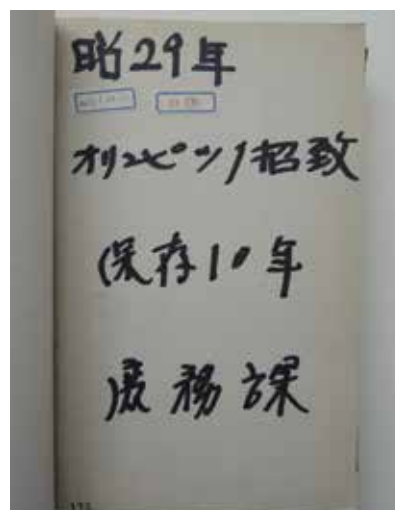 昭29年
オリンピック招致
保存10年
庶務課